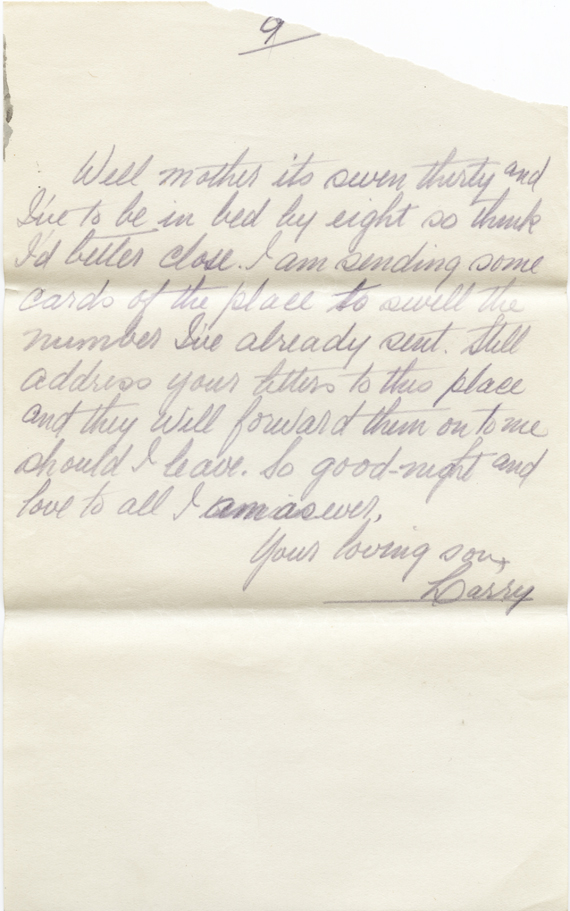 9
Well mother its seven thirty and
I've to be in bed by eight so think
I'd better close. I am sending some
cards of the place to swell the
number I've already sent. Still
address your letters to this place
and they will forward them on to me
should I leave. So good-night and
love to all I am as ever,
Your loving son,
Larry